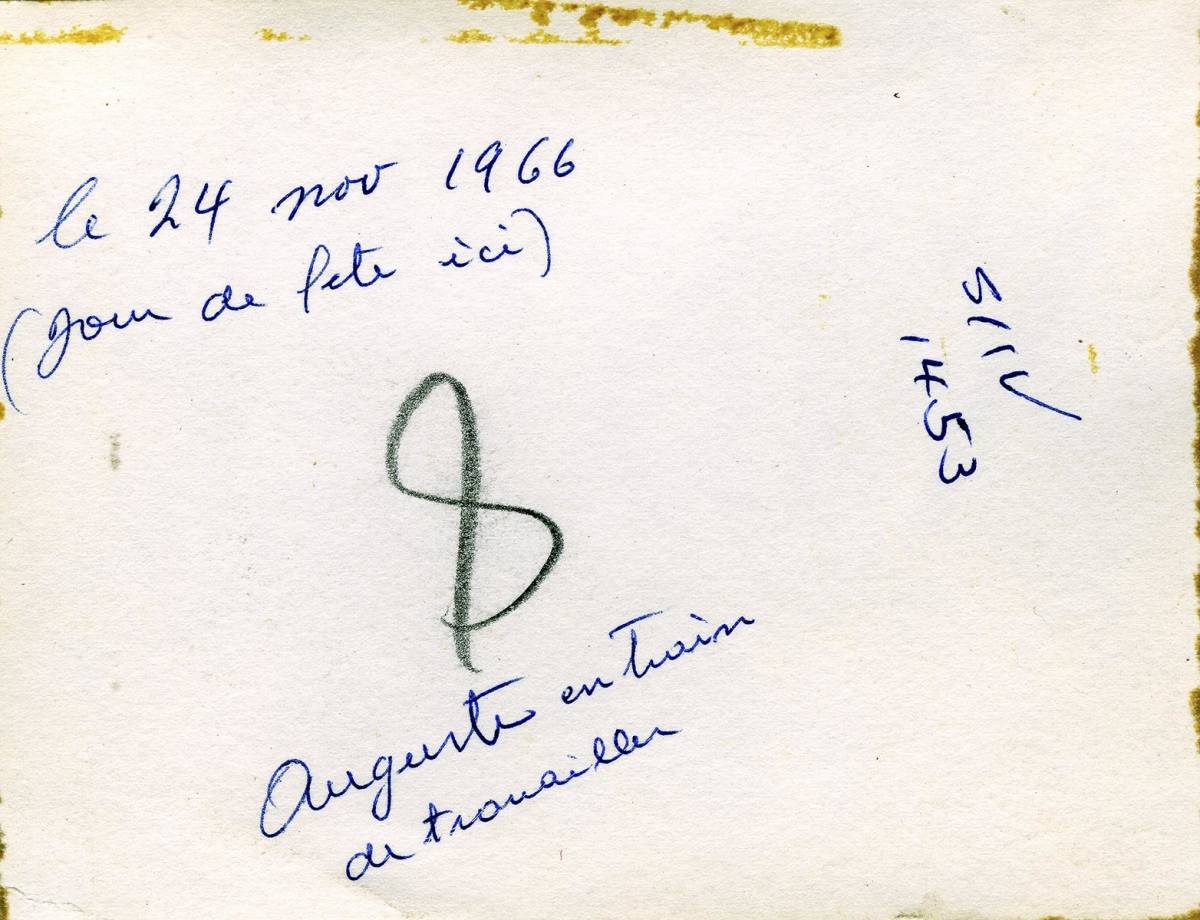 le 24 nov 1966
(Jour de fete ici)
8
Auguste en train
de travailler
1453